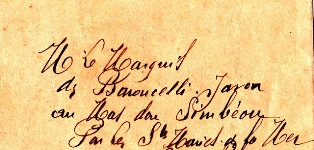 M. le Marquis
de Baroncelli-Javon
au Mas dou Simbèou
Par les Stes Maries de la Mer